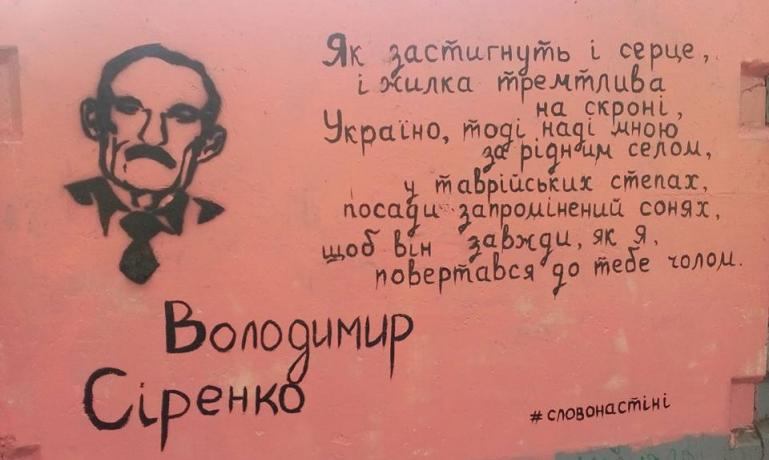 Як застигнуть і серце,
і жилка тремтлива
на скроні,
Україно, тоді наді мною
за рідним селом,
у таврійських степах,
посади запромінений сонях,
щоб він завжди, як я,
повертався до тебе чолом.
Володимир
Сіренко
#словонастіні